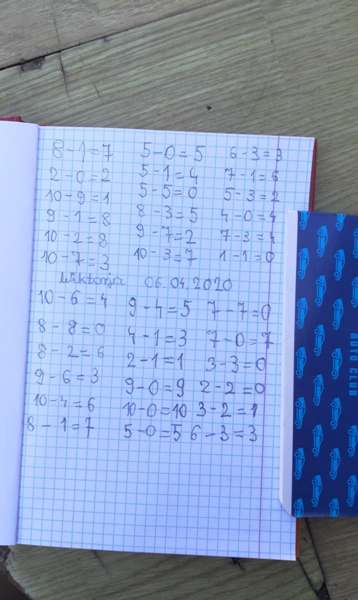 8-1=7 5-0=5 6-3=3
2-0=2 5-1=4 7-1=6
10-9=1 5-5=0 5-3=2
9-1=8 8-3=5 4-0=4
10-2=8 9-7=2 7-3=4
10-7=3 10-3=7 1-1=0
Wiktoria 06.04.2020
10-6=4 9-4=5 7-7=0
8-8=0 4-1=3 7-0=7
8-2=6 2-1=1 3-3=0
9-6=3 9-0=9 2-2=0
10-4=6 10-0=10 3-2=1
8-1=7 5-0=5 6-3=3
AUTO CLUB